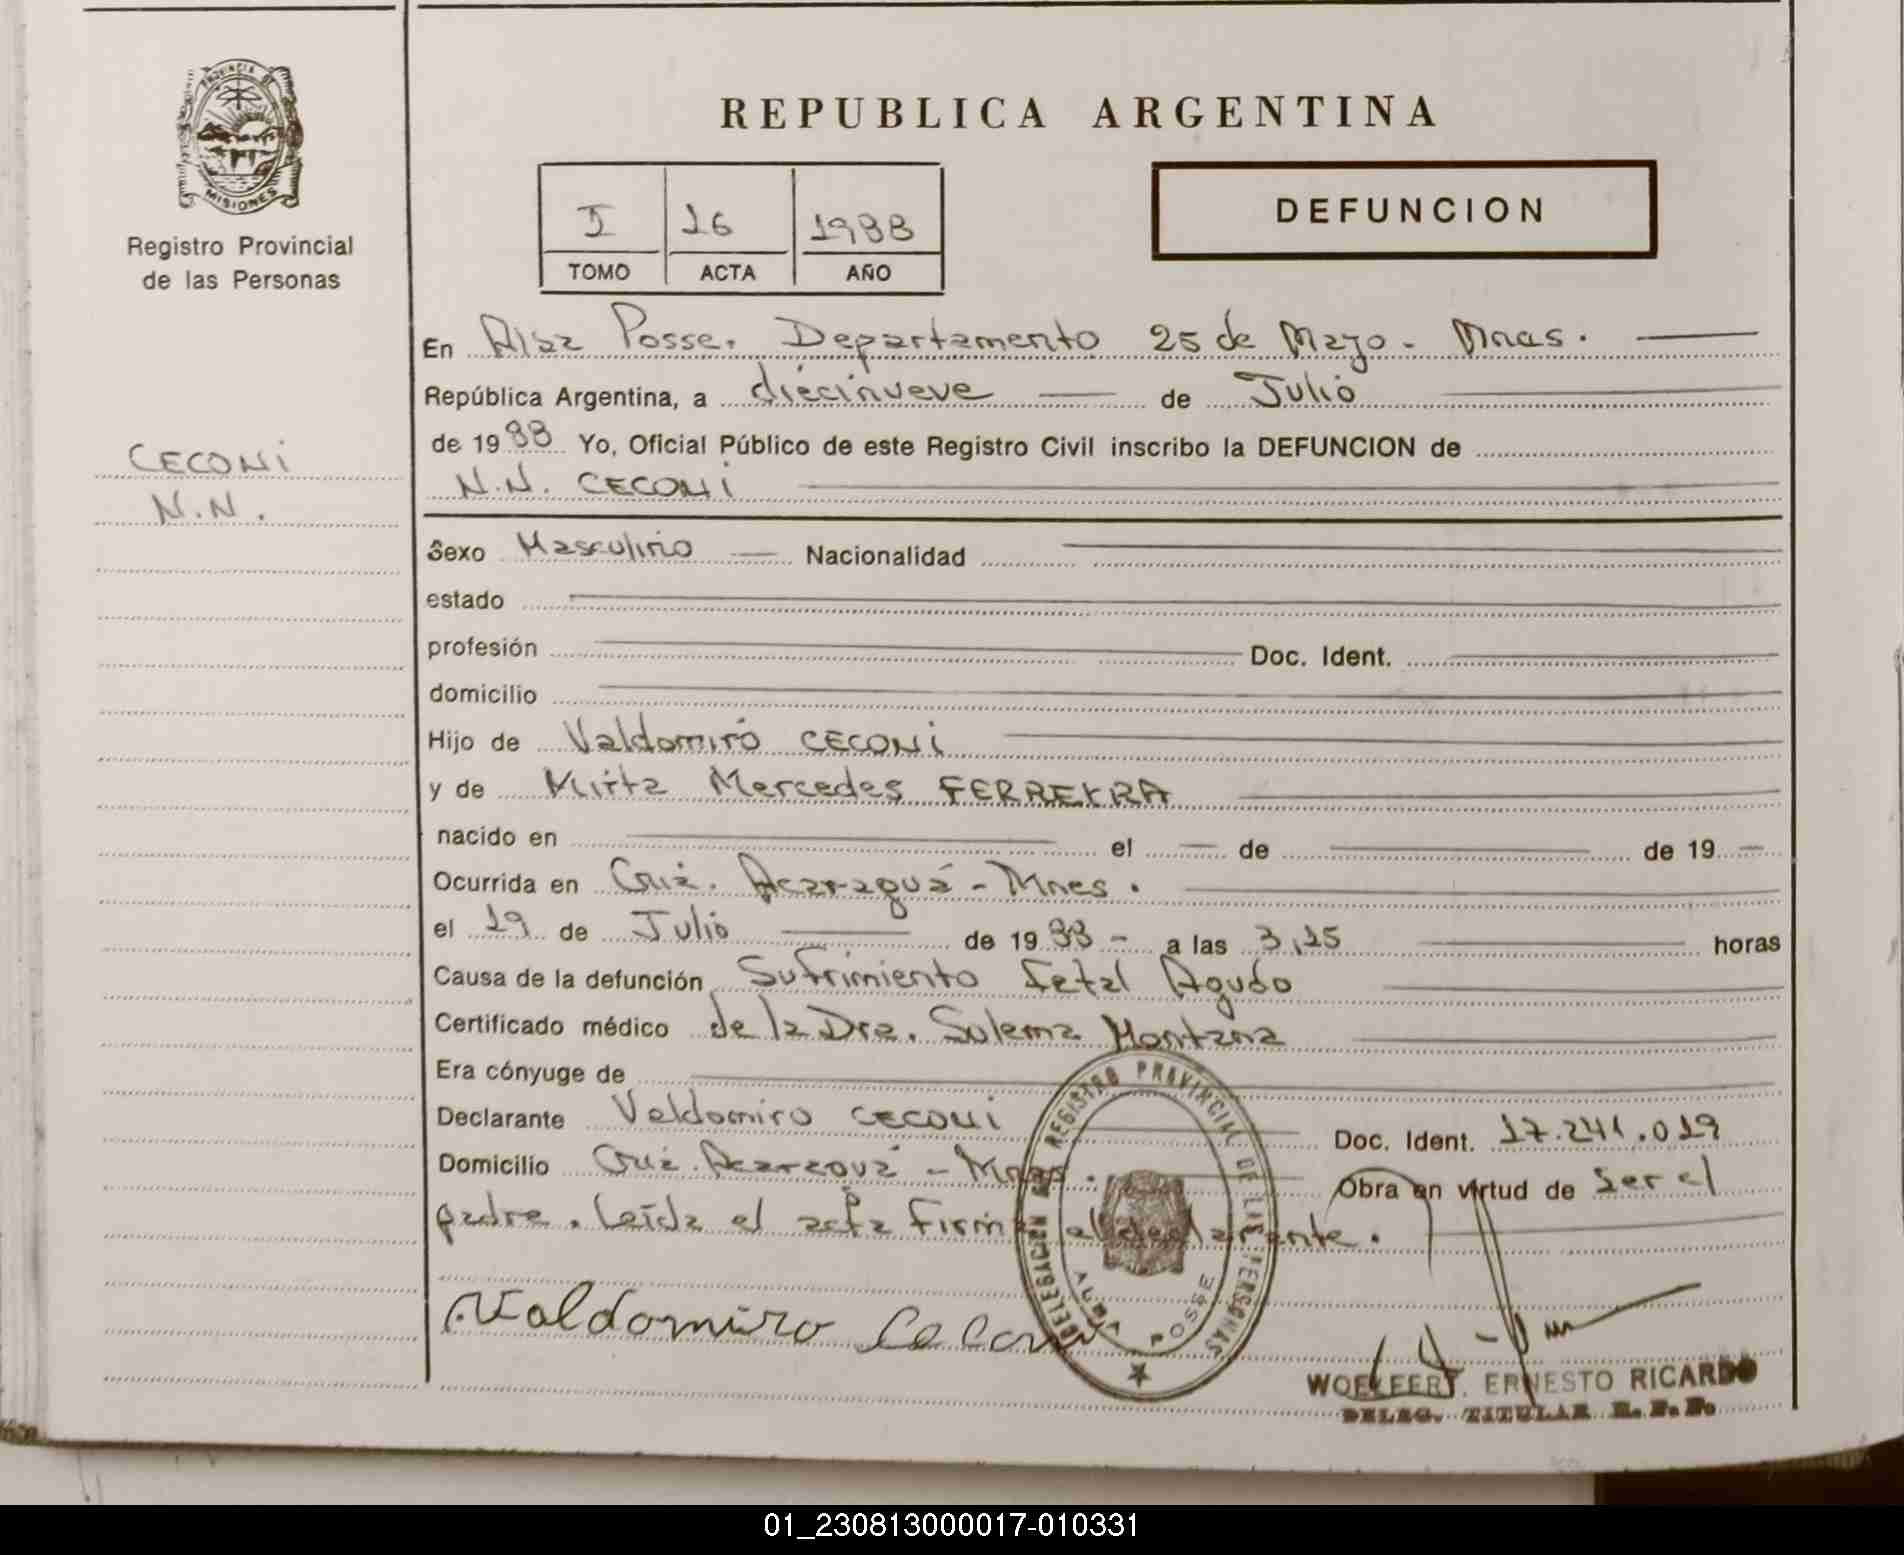 PROVINCIA DE
MISIONES
Registro Provincial
de las Personas
CECONI
N.N.
REPUBLICA ARGENTINA
I 16 1988
TOMO ACTA AÑO
DEFUNCION
En Alba Posse. Departamento 25 de Mayo - Mnes.
República Argentina, a diecinueve de Julio
de 1988 Yo, Oficial Público de este Registro Civil inscribo la DEFUNCION de
N.N. CECONI
Sexo Masculino Nacionalidad
estado
profesión Doc. Ident.
domicilio
Hijo de Valdomiro CECONI
y de Mirta Mercedes FERREYRA
nacido en el de de 19
Ocurrida en Cnia. Acaraguá - Mnes.
el 19 de Julio de 1988 - a las 3,15 horas
Causa de la defunción Sufrimiento Fetal Agudo
Certificado médico de la Dra. Sulema Montana
Era cónyuge de
Declarante Valdomiro CECONI Doc. Ident. 17.241.019
Domicilio Cnia. Acaraguá - Mnes. Obra en virtud de ser el
padre. Leída el acta firma el declarante.
Valdomiro Ceconi
DELEGACION REGISTRO PROVINCIAL DE LAS PERSONAS
ALBA POSSE
WOELFERT, ERNESTO RICARDO
DELEG. TITULAR R. P. P.
01_230813000017-010331